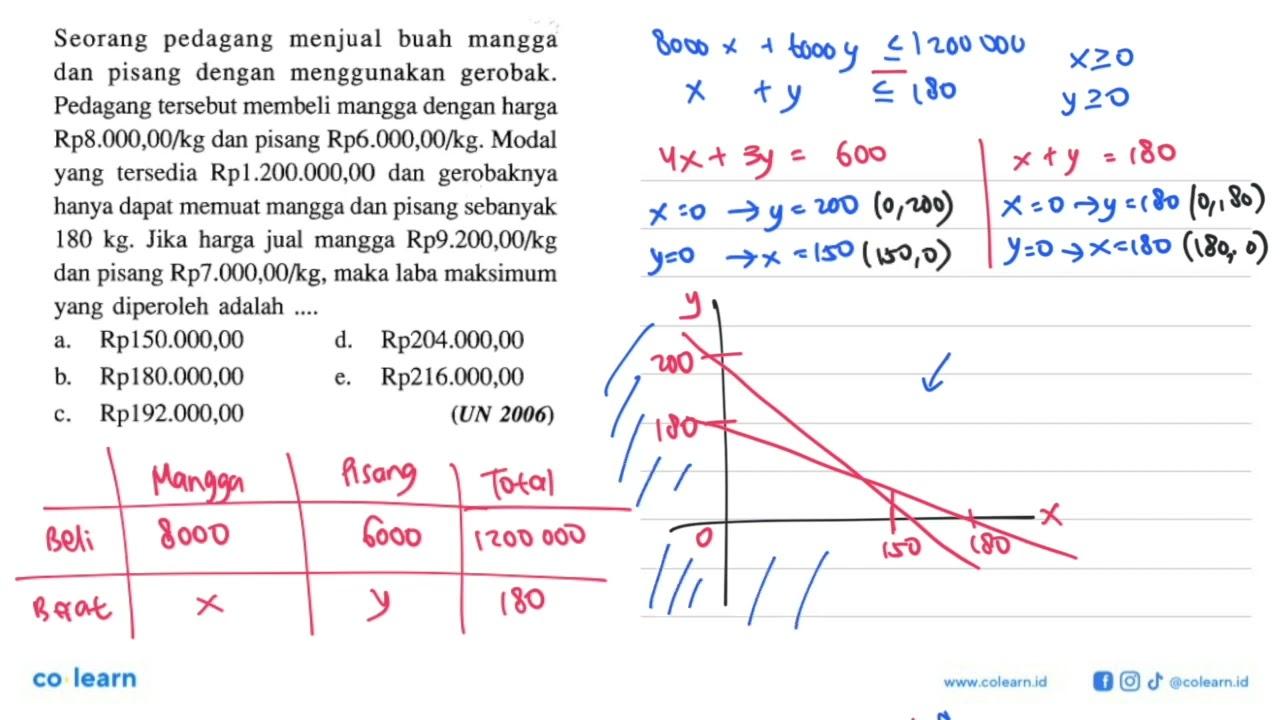 Seorang pedagang menjual buah mangga
dan pisang dengan menggunakan gerobak.
Pedagang tersebut membeli mangga dengan harga
Rp8.000,00/kg dan pisang Rp6.000,00/kg. Modal
yang tersedia Rp1.200.000,00 dan gerobaknya
hanya dapat memuat mangga dan pisang sebanyak
180 kg. Jika harga jual mangga Rp9.200,00/kg
dan pisang Rp7.000,00/kg, maka laba maksimum
yang diperoleh adalah ....
a. Rp150.000,00 d. Rp204.000,00
b. Rp180.000,00 e. Rp216.000,00
c. Rp192.000,00 (UN 2006)
Mangga Pisang Total
Beli 8000 6000 1200 000
Berat x y 180
8000 x + 6000 y ≤ 1200 000 x ≥ 0
x + y ≤ 180 y ≥ 0
4x + 3y = 600 x + y = 180
x = 0 → y = 200 (0,200) x = 0 → y = 180 (0,180)
y = 0 → x = 150 (150,0) y = 0 → x = 180 (180,0)
y
200
180
x
0 150 180
co learn
www.colearn.id @colearn.id